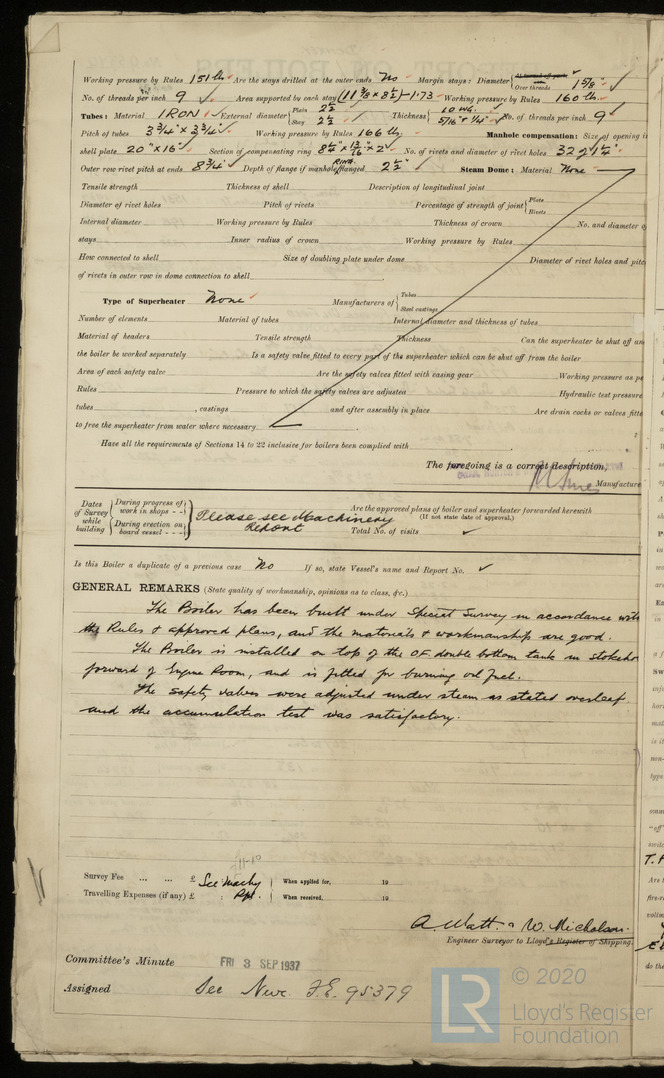 Working pressure by Rules 151 lbs Are the stays drilled at the outer ends No Margin stays: Diameter { At turned off part, or Over threads 1 5/8"
No. of threads per inch 9 Area supported by each stay (11 3/8 × 8 1/2) - 1.73 Working pressure by Rules 160 lbs.
Tubes: Material IRON External diameter { Plain 2 1/2 Stay 2 1/2 Thickness { 10 WG. 5/16" & 1/4" No. of threads per inch 9
Pitch of tubes 3 3/4" × 3 3/4" Working pressure by Rules 166 lbs. Manhole compensation: Size of opening i
shell plate 20" × 16" Section of compensating ring 8 1/4" × 13/16" × 2 No. of rivets and diameter of rivet holes 32 of 1 1/4"
Outer row rivet pitch at ends 8 3/4" Depth of flange if manhole RING flanged 2 1/2" Steam Dome: Material None
Tensile strength Thickness of shell Description of longitudinal joint
Diameter of rivet holes Pitch of rivets Percentage of strength of joint { Plate Rivets
Internal diameter Working pressure by Rules Thickness of crown No. and diameter o
stays Inner radius of crown Working pressure by Rules
How connected to shell Size of doubling plate under dome Diameter of rivet holes and pitc
of rivets in outer row in dome connection to shell
Type of Superheater None Manufacturers of { Tubes Steel castings
Number of elements Material of tubes Internal diameter and thickness of tubes
Material of headers Tensile strength Thickness Can the superheater be shut off an
the boiler be worked separately Is a safety valve fitted to every part of the superheater which can be shut off from the boiler
Area of each safety valve Are the safety valves fitted with easing gear Working pressure as pe
Rules Pressure to which the safety valves are adjusted Hydraulic test pressure
tubes , castings and after assembly in place Are drain cocks or valves fitte
to free the superheater from water where necessary
Have all the requirements of Sections 14 to 22 inclusive for boilers been complied with
The foregoing is a correct description,
Manufacture
Dates of Survey while building { During progress of work in shops - - During erection on board vessel - - } Please see Machinery Report Are the approved plans of boiler and superheater forwarded herewith (If not state date of approval.)
Total No. of visits
Is this Boiler a duplicate of a previous case No If so, state Vessel's name and Report No.
GENERAL REMARKS (State quality of workmanship, opinions as to class, &c.)
The Boiler has been built under Special Survey in accordance with
the Rules & approved plans, and the materials & workmanship are good.
The Boiler is installed on top of the O.F. double bottom tank in Stokeho
forward of Engine Room, and is fitted for burning oil fuel.
The safety valves were adjusted under steam as stated overleaf
and the accumulation test was satisfactory.
Survey Fee ... ... £ See Machy When applied for, 19
Travelling Expenses (if any) £ : Rpt. When received, 19
A. Watt. & W. Nicholson.
Engineer Surveyor to Lloyd's Register of Shipping.
Committee's Minute FRI 3 SEP 1937
Assigned See Nwc. F.E. 95379
LR © 2020
Lloyd's Register
Foundation